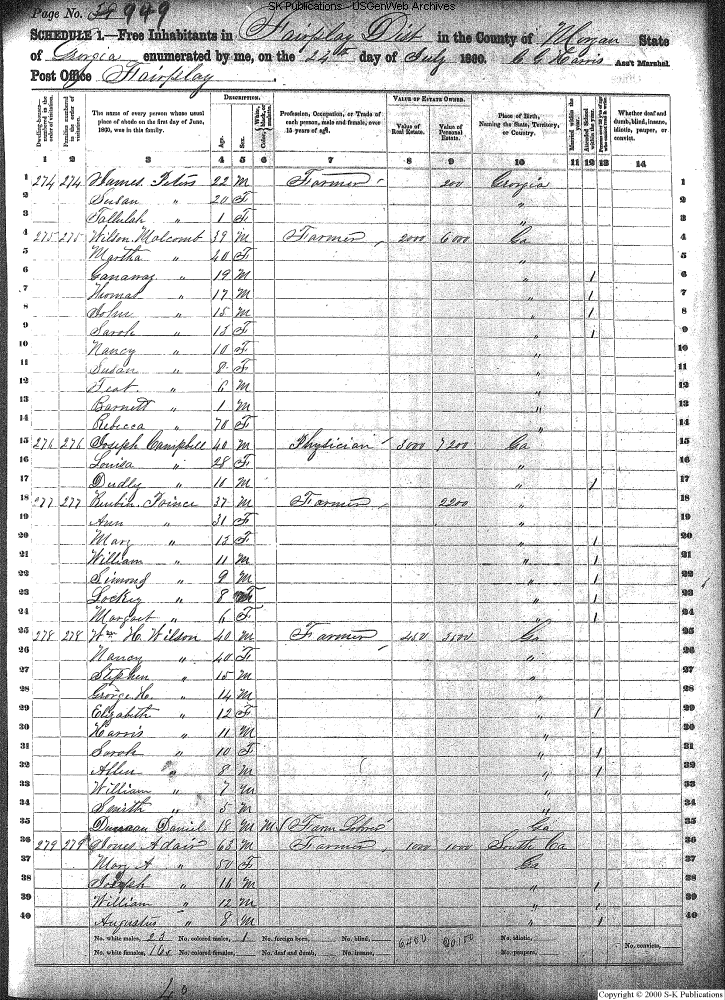 SK Publications - USGenWeb Archives
Page No. 949
SCHEDULE 1.—Free Inhabitants in Fairplay Dist in the County of Morgan State
of Georgia enumerated by me, on the 24th day of July 1860. C G Harris Ass't Marshal.
Post Office Fairplay
Dwelling-houses—numbered in the order of visitation.
Families numbered in the order of visitation.
The name of every person whose usual place of abode on the first day of June, 1860, was in this family.
DESCRIPTION.
Age.
Sex.
Color, White, black, or mulatto.
Profession, Occupation, or Trade of each person, male and female, over 15 years of age.
VALUE OF ESTATE OWNED.
Value of Real Estate.
Value of Personal Estate.
Place of Birth, Naming the State, Territory, or Country.
Married within the year.
Attended School within the year.
Whether deaf and dumb, blind, insane, idiotic, pauper, or convict.
1 2 3 4 5 6 7 8 9 10 11 12 13 14
1 274 274 James Peters 22 M Farmer 200 Georgia 1
2 Susan " 20 F " 2
3 Tallulah " 1 F " 3
4 275 275 Wilson Malcomb 39 M Farmer 2000 6000 Ga 4
5 Martha " 40 F " 5
6 Canaway " 19 M " 1 6
7 Thomas " 17 M " 1 7
8 John " 15 M " 1 8
9 Sarah " 13 F " 1 9
10 Nancy " 10 F " 10
11 Susan " 8 F " 11
12 " 6 M " 12
13 Barnett " 1 M " 13
14 Rebecca " 70 F " 14
15 276 276 Joseph Campbell 40 M Physician 3000 7200 Ga 15
16 Louisa " 28 F " 16
17 Dudly " 10 M " 1 17
18 277 277 Reubin Prince 37 M Farmer 2200 " 18
19 Ann " 31 F " 19
20 Mary " 13 F " 1 20
21 William " 11 M " 1 21
22 Simond " 9 M " 1 22
23 Lockey " 8 F " 1 23
24 Margaret " 6 F " 1 24
25 278 278 Wm H. Wilson 40 M Farmer Ga 25
26 Nancy " 40 F " 26
27 Stephen " 15 M 27
28 George H. " 14 M " 28
29 Elizabeth " 12 F " 1 29
30 Harris " 11 M " 30
31 Sarah " 10 F " 1 31
32 Allen " 8 M " 1 32
33 William " 7 M " 33
34 Smith " 5 M " 34
35 Duncan Daniel 18 M M Farm Labor Ga 35
36 279 279 Jones Adair 63 M Farmer 1000 1000 South Ca 36
37 Mary A " 50 F Ga 37
38 Joseph " 16 M " 1 38
39 William " 12 M " 1 39
40 Augustus " 8 M " 1 40
No. white males, 23 No. colored males, 1 No. foreign born, No. blind, 6400 20100 No. idiotic,
No. white females, 16 No. colored females, No. deaf and dumb, No. insane, No. paupers, No. convicts,
Copyright © 2000 S-K Publications